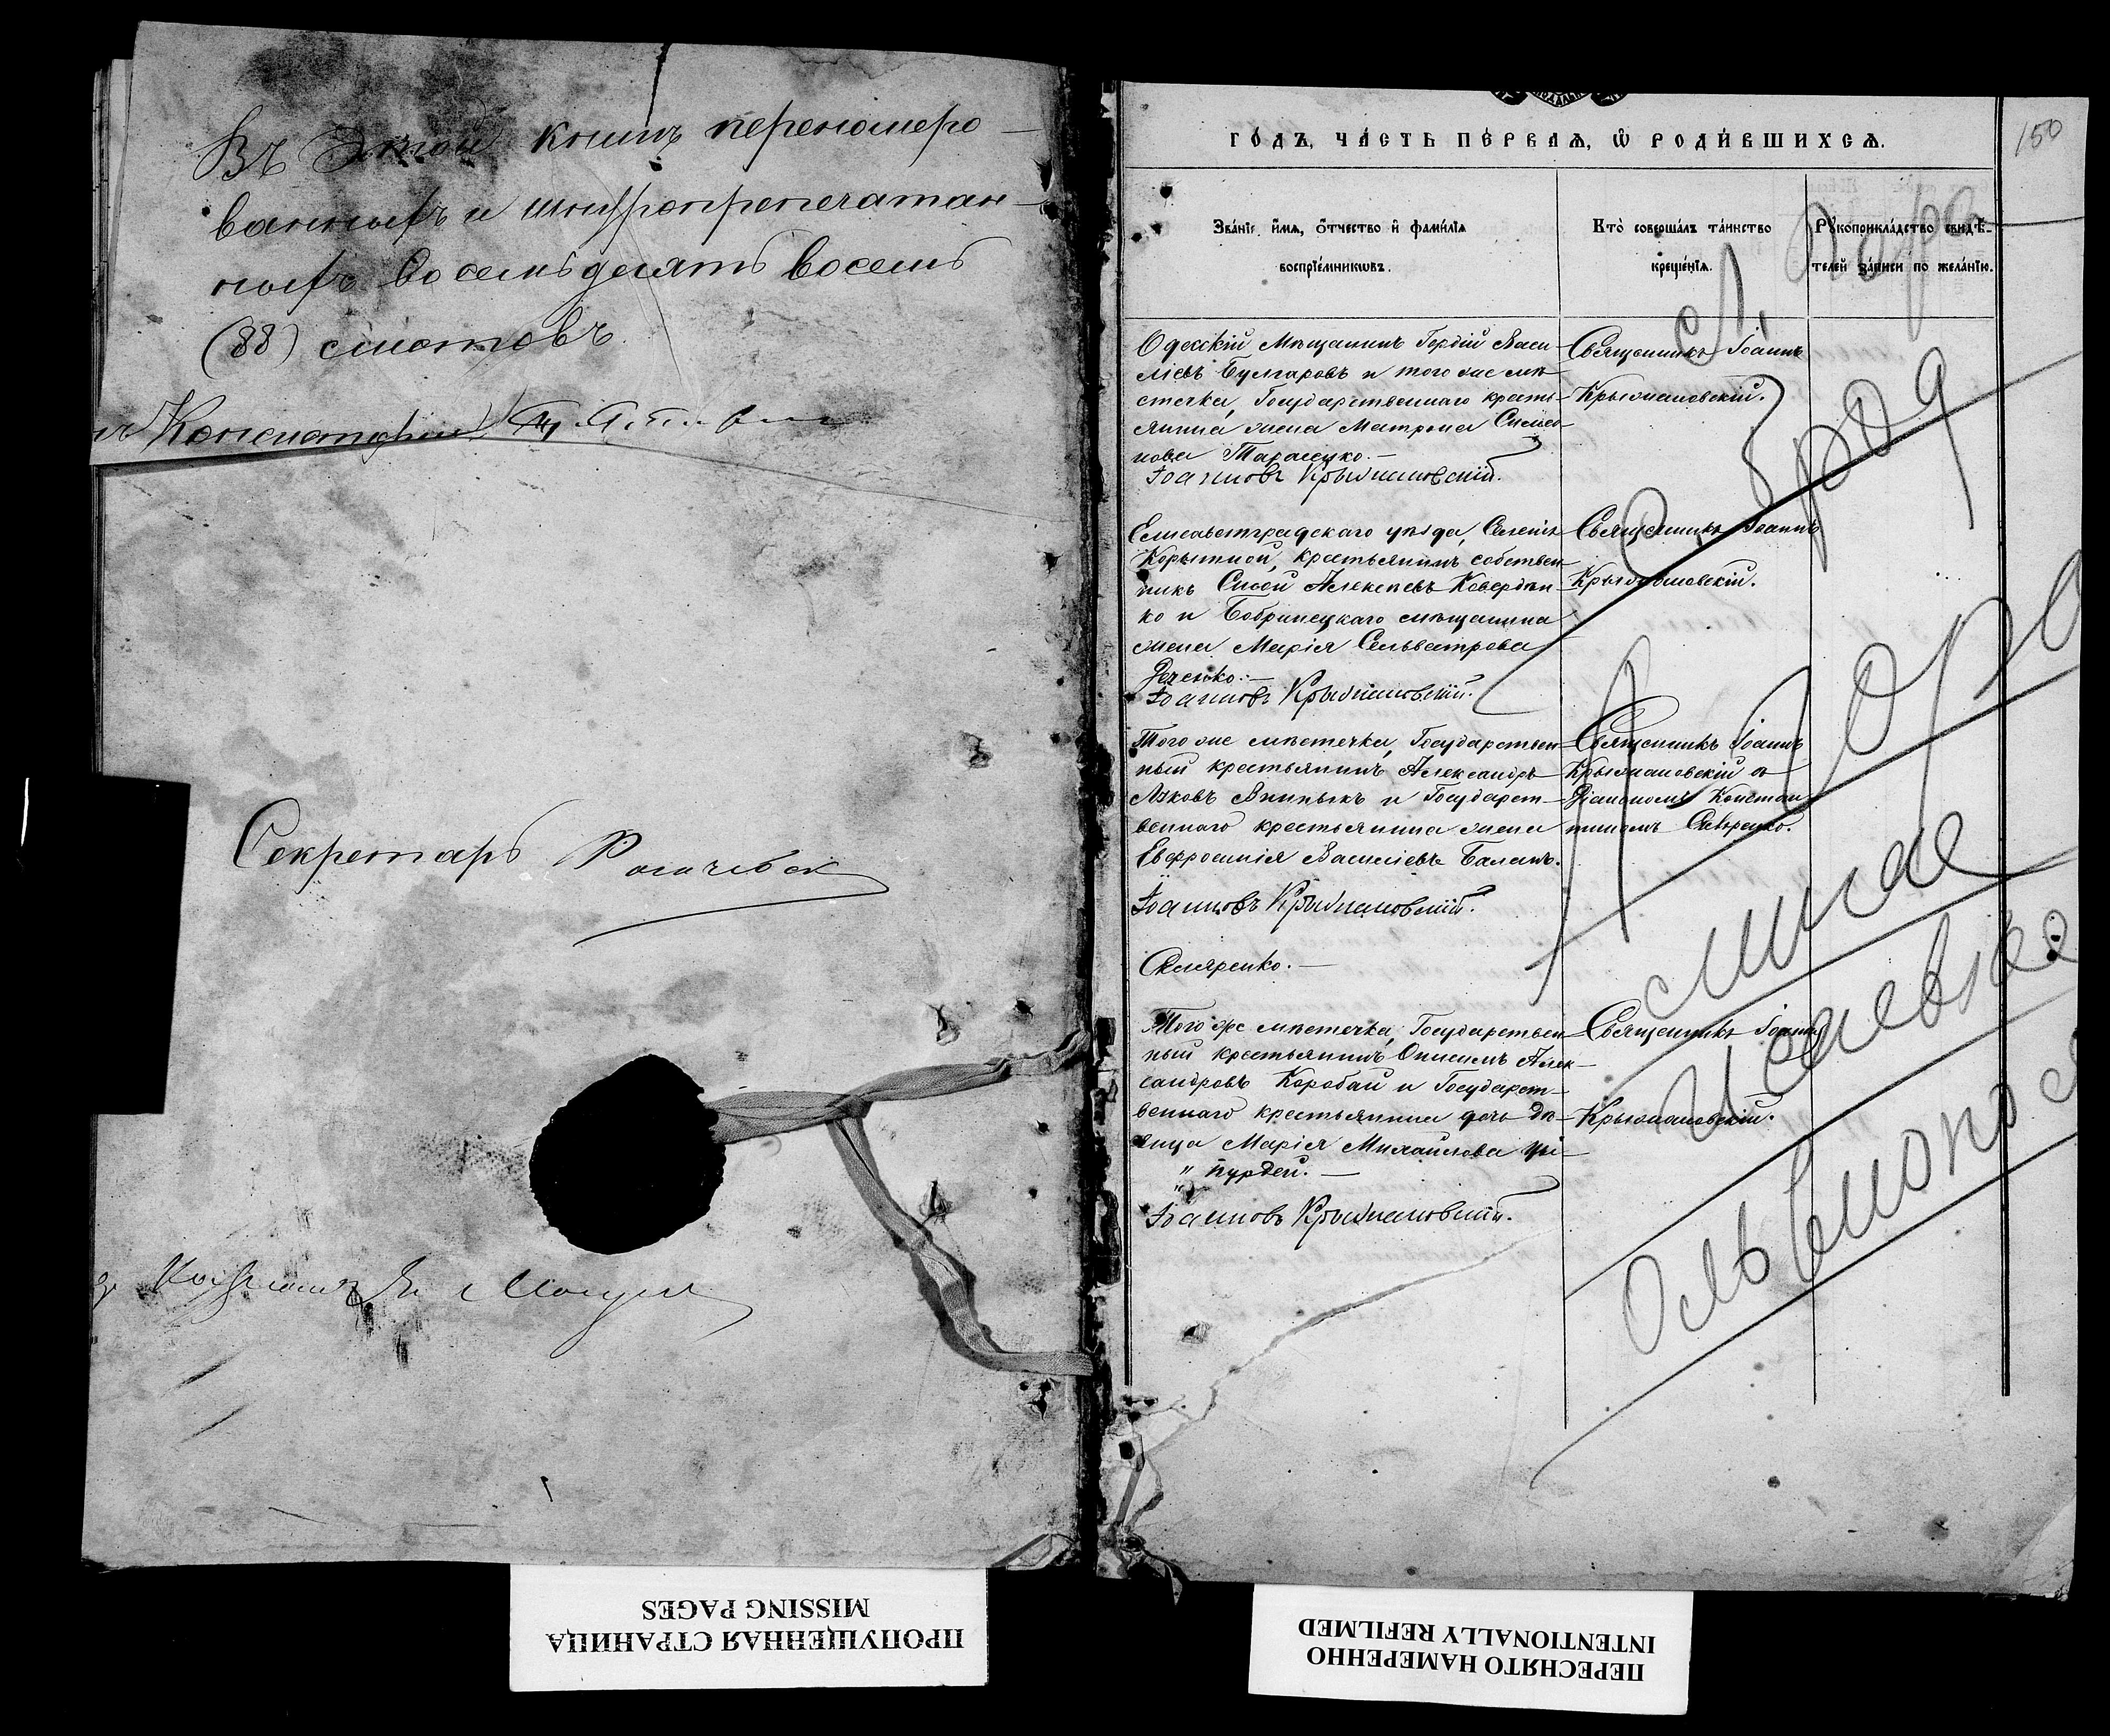 Въ этой книгѣ перенумеро-
ванныхъ и шнуропрепечатан-
ныхъ восемьдесятъ восемь
(88) листовъ
Секретарь
150
ГО́ДЪ, ЧА́СТЬ ПЕ́РВАѦ, Ѡ҆ РОДИ́ВШИХСѦ.
Зва́нїе, и҆́мѧ, ѻ҆́тчество и҆ фами́лїѧ
воспрїе́мникѡвъ.
Кто̀ соверша́лъ та́инство
креще́нїѧ.
Рꙋкоприкла́дство свидѣ́-
телей за́писи по жела́нїю.
Одесскій Мѣщанинъ Гордій Васи-
ліевъ Булгаровъ и того же мѣ-
стечка, Государственнаго кресть-
янина жена Матрона Симео-
нова Тарасенко.—
Іоанновъ Крыжановскій.
Священникъ Іоаннъ
Крыжановскій.
Елисаветградскаго уѣзда, Селенія
Корытной, крестьянинъ собствен-
никъ Сисой Алексѣевъ
ко и Бобринецкаго мѣщанина
жена Марія Сельвестрова
Іоанновъ Крыжановскій.
Священникъ Іоаннъ
Крыжановскій.
Того же мѣстечка, Государствен-
ный крестьянинъ Александръ
Яковъ и Государст-
веннаго крестьянина жена
Евфросинія Василіевъ Баланъ.
Іоанновъ Крыжановскій.
Скляренко.—
Священникъ Іоаннъ
Крыжановскій съ
Діакономъ Констан-
тиномъ Скляренко.
Того же мѣстечка, Государствен-
ный крестьянинъ Онисимъ Алек-
сандровъ Коробай и Государст-
веннаго крестьянина дочь дѣ-
вица Марія Михайлова Чи-
" пурдей.—
Іоанновъ Крыжановскій.
Священникъ Іоаннъ
Крыжановскій.
Исаевка
Ольвиопо
ПРОПУЩЕННАЯ СТРАНИЦА
MISSING PAGES
ПЕРЕСНЯТО НАМЕРЕННО
INTENTIONALLY REFILMED